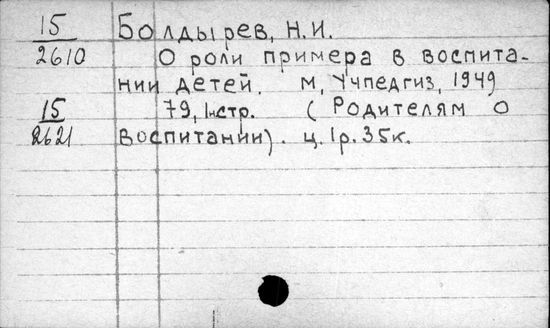 15 Болдырев, Н.И.
2610 О роли примера в воспита-
нии детей. М, Учпедгиз, 1949
15 79, 1нстр. (Родителям о
2621 воспитании). ц. 1р. 35к.